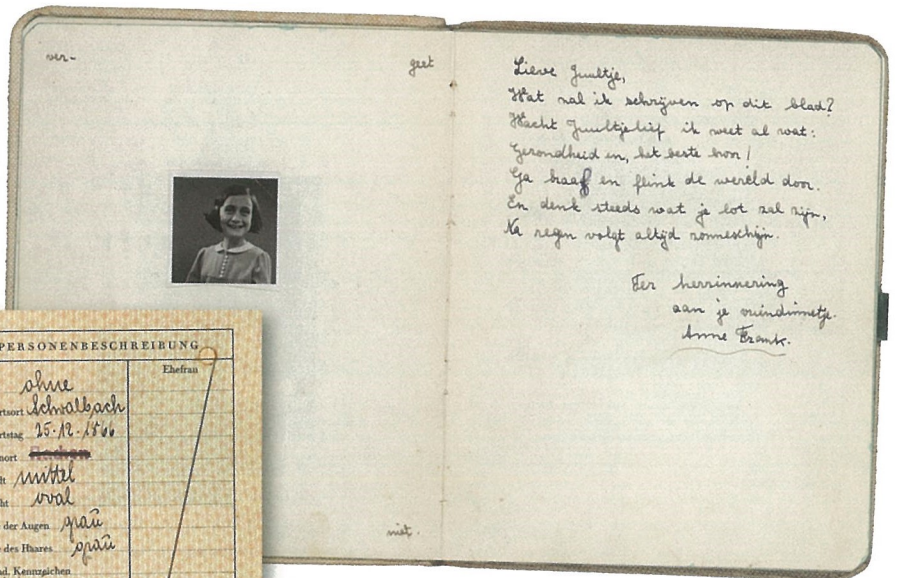 ver-
geet
Lieve Juultje,
Wat zal ik schrijven op dit blad?
Wacht Juultjelief ik weet al wat:
Gezondheid en, het beste hoor!
Ga braaf en flink de wereld door.
En denk steeds wat je lot zal zijn,
Na regen volgt altijd zonneschijn.
Ter herrinnering
aan je vriendinnetje.
Anne Frank.
niet.
PERSONENBESCHREIBUNG
Ehefrau
ohne
rtsort Schwalbach
rtstag 25.12.1866
nort
lt mittel
ht oval
der Augen grau
des Haares grau
nd. Kennzeichen